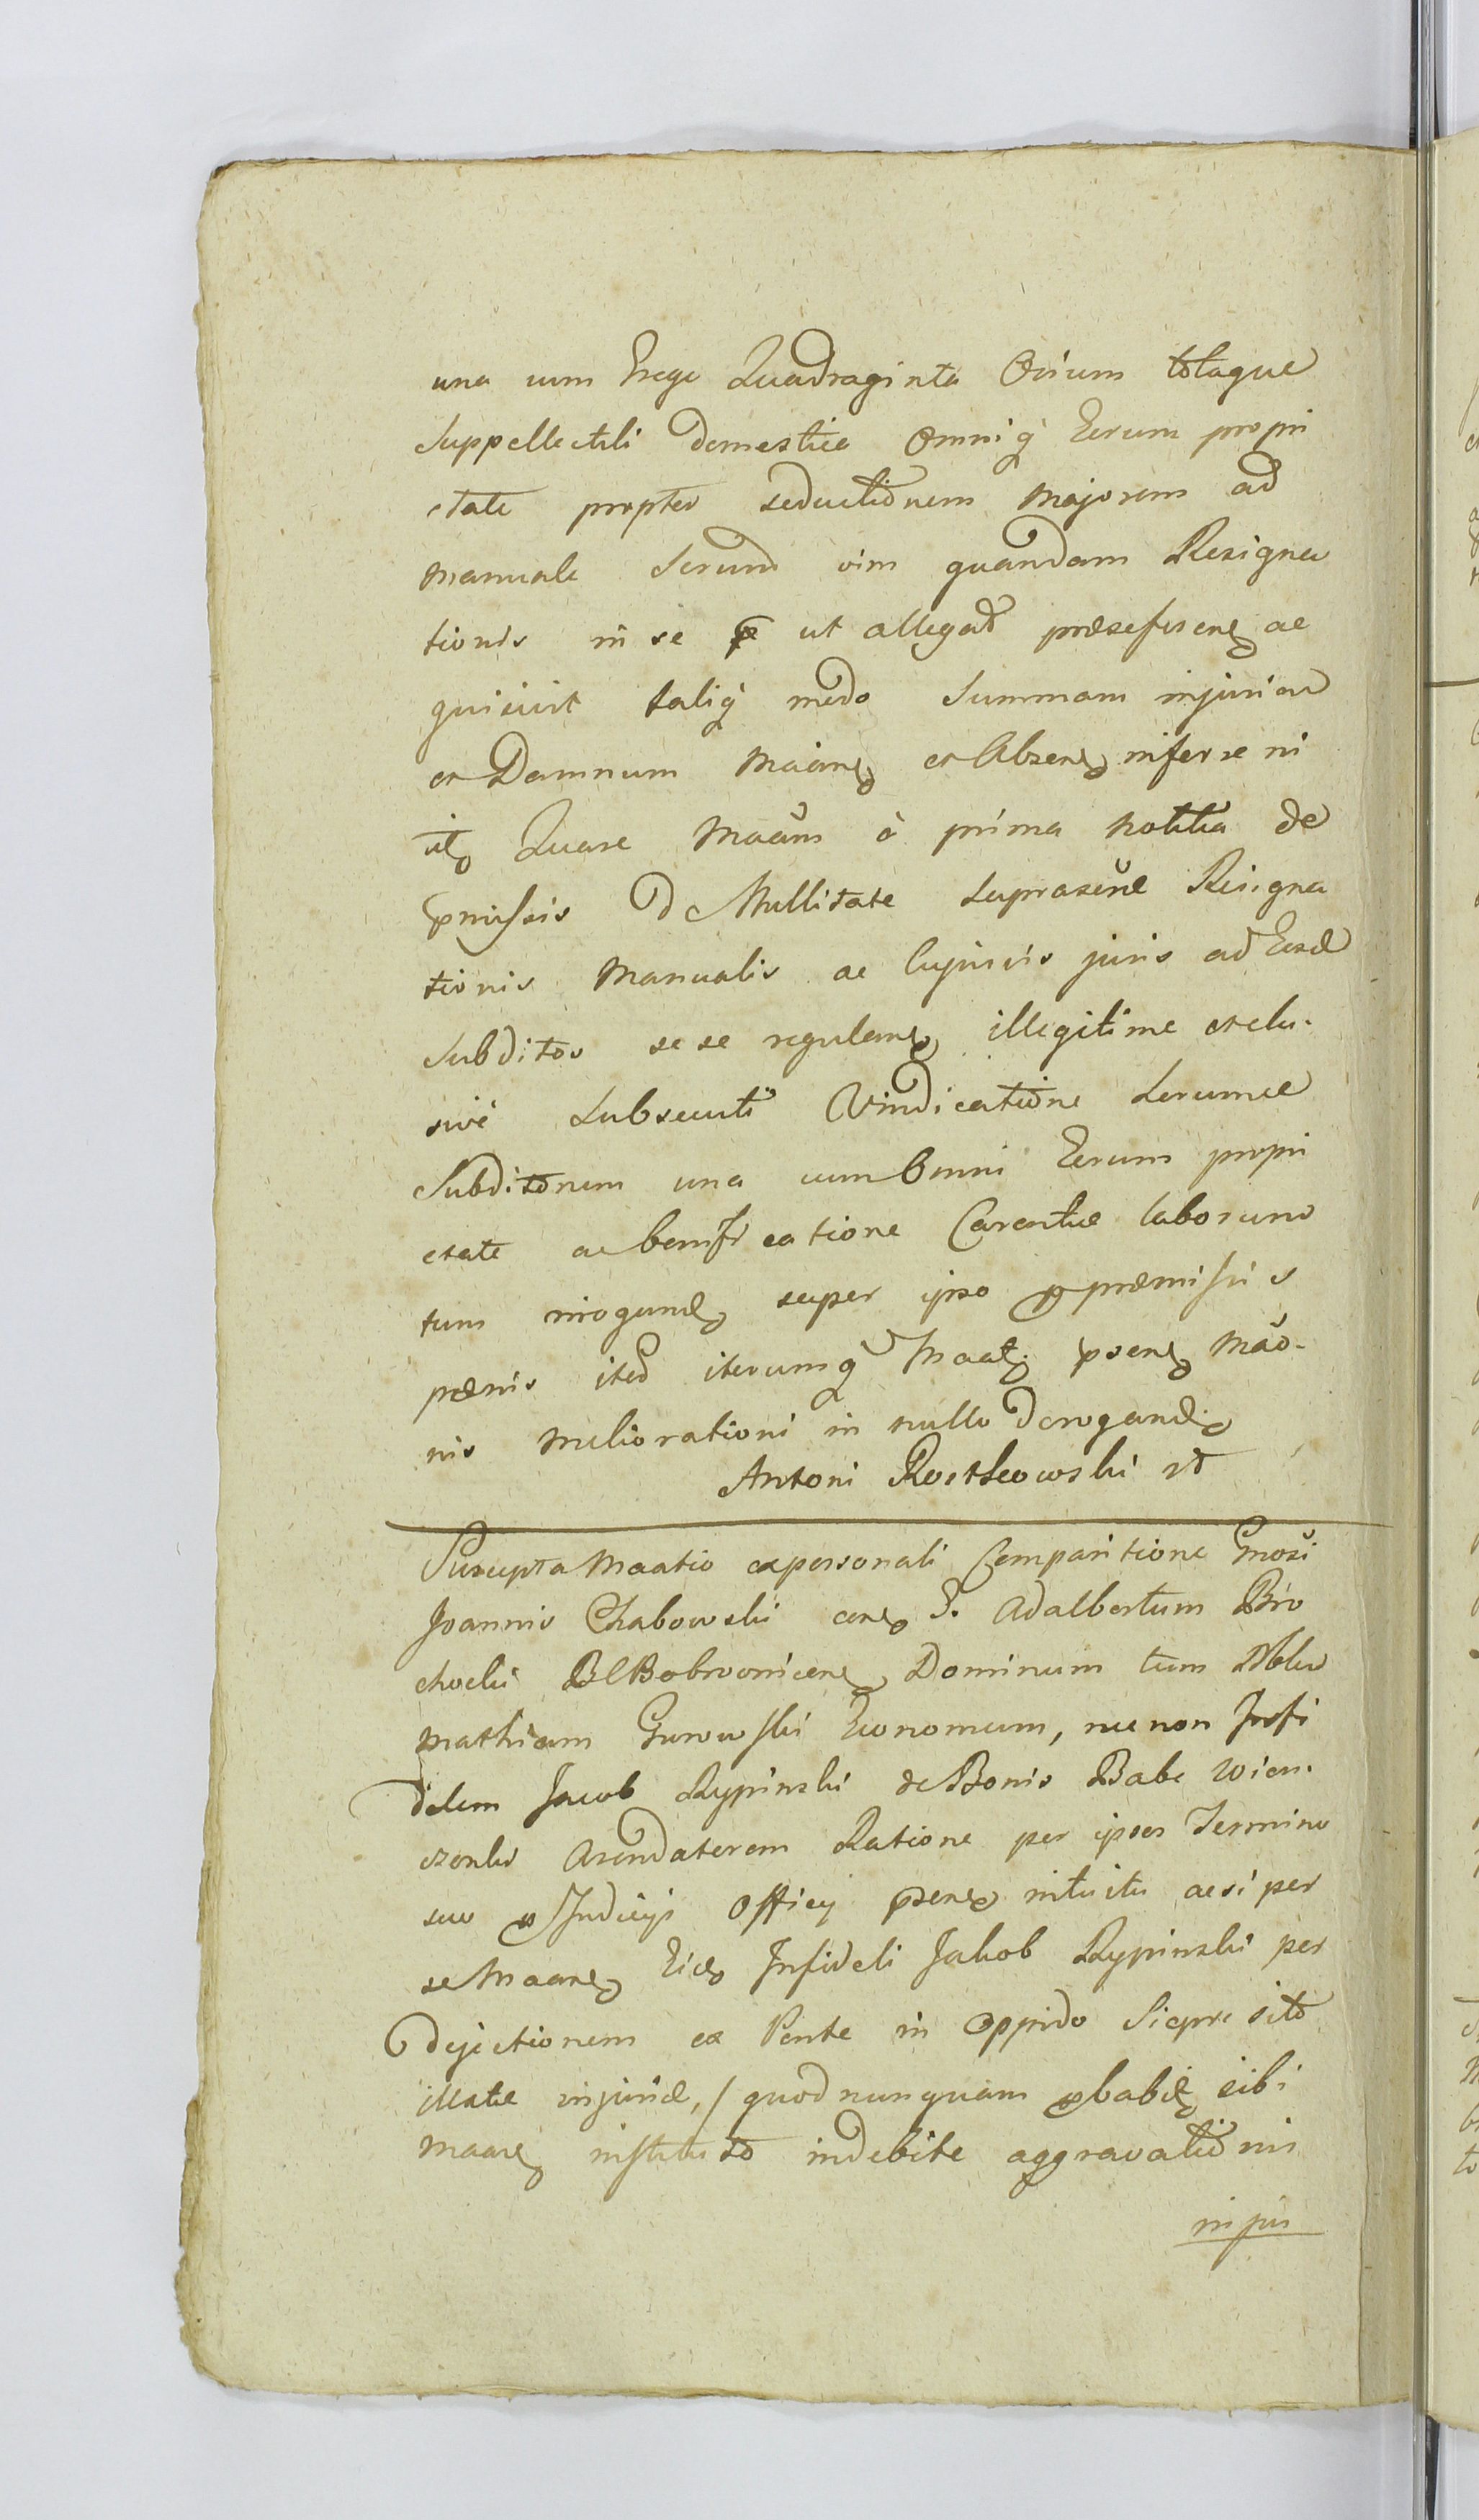 una cum Grege Quadraginta Ovium totaque
Suppellectili domestica Omniq̀ Eorum propri
etate propter seductionem majorem ad
manuale Scrund vim quandam Resigna
tionis in se ut allegat præseferenᶒ ac
quisivit taliq̀ modo Summam injuriam
et Damnum Maanᶒ et Absenᶒ inferre ni
titᶒ Quare Maans à prima notitia de
pmissis D Nullitate Suprascriptæ Resigna
tionis Manualis ac Cujusvis juris ad Eosd
Subditos se se regulanᶒ illegitime exclu-
sivè Subsecuti Vindicatione Eorumd
Subditorum una cum Omni Eorum propri
etate ac bonificatione Carentiæ laborum
tum irrogandᶒ super ipso pro præmissis
pænis ited iterumq̀ Maatᶒ psenᶒ Mao-
nis meliorationi in nullo derogandᶒ
Antoni Rostkowski
Suscepta Maatio ex personali Comparitione Gnosi
Joannis Chabowski conᶒ G. Adalbertum Bro
chocki Bobrownicenᶒ Dominum tum Nblem
Mathiam Gurowski Economum, nec non Infi
delem Jacob Rypinski de Bonis Babe Wien-
Arendatorem Ratione per ipsos Termino
suo Judicÿ Officÿ psenᶒ intuitu acsi per
se Maanᶒ Eidᶒ Infideli Jakob Rypinski per
dejectionem ex Ponte in Oppido Sierpc sito
illatæ injuriæ, / quod nunquam pbabitᶒ sibi
Maanᶒ instituto indebite aggravationis
injus